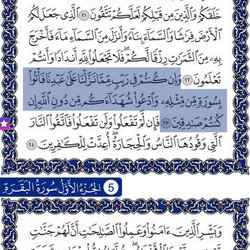 خَلَقَكُمْ وَالَّذِينَ مِن قَبْلِكُمْ لَعَلَّكُمْ تَتَّقُونَ ٢١ الَّذِي جَعَلَ لَكُمُ
الْأَرْضَ فِرَاشًا وَالسَّمَاءَ بِنَاءً وَأَنزَلَ مِنَ السَّمَاءِ مَاءً فَأَخْرَجَ
بِهِ مِنَ الثَّمَرَاتِ رِزْقًا لَّكُمْ فَلَا تَجْعَلُوا لِلَّهِ أَندَادًا وَأَنتُمْ
تَعْلَمُونَ ٢٢ وَإِن كُنتُمْ فِي رَيْبٍ مِّمَّا نَزَّلْنَا عَلَىٰ عَبْدِنَا فَأْتُوا
بِسُورَةٍ مِّن مِّثْلِهِ وَادْعُوا شُهَدَاءَكُم مِّن دُونِ اللَّهِ إِن
كُنتُمْ صَادِقِينَ ٢٣ فَإِن لَّمْ تَفْعَلُوا وَلَن تَفْعَلُوا فَاتَّقُوا النَّارَ
الَّتِي وَقُودُهَا النَّاسُ وَالْحِجَارَةُ أُعِدَّتْ لِلْكَافِرِينَ ٢٤
الجُزءُ الأَوَّلُ 5 سُورَةُ البَقَرَةِ
وَبَشِّرِ الَّذِينَ ءَامَنُوا وَعَمِلُوا الصَّالِحَاتِ أَنَّ لَهُمْ جَنَّاتٍ